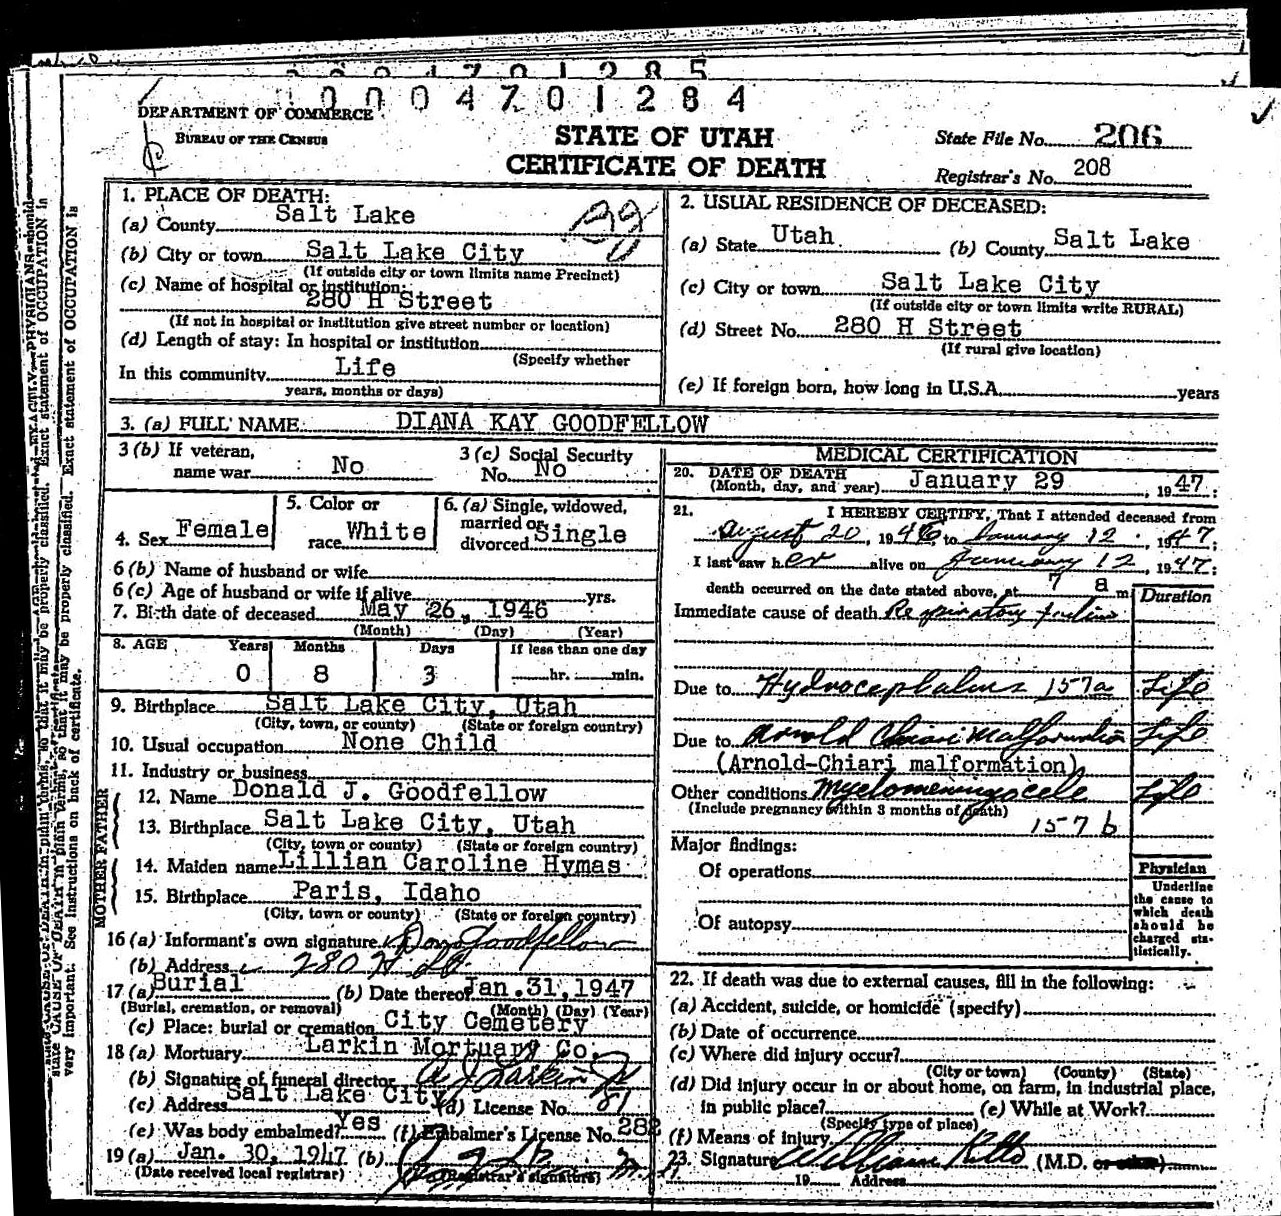 0004701285
0004701284
DEPARTMENT OF COMMERCE
BUREAU OF THE CENSUS
STATE OF UTAH
CERTIFICATE OF DEATH
State File No. 206
Registrar's No. 208
1. PLACE OF DEATH:
(a) County Salt Lake
(b) City or town Salt Lake City
(If outside city or town limits name Precinct)
(c) Name of hospital or institution:
280 H Street
(If not in hospital or institution give street number or location)
(d) Length of stay: In hospital or institution
(Specify whether
In this community Life
years, months or days)
2. USUAL RESIDENCE OF DECEASED:
(a) State Utah (b) County Salt Lake
(c) City or town Salt Lake City
(If outside city or town limits write RURAL)
(d) Street No. 280 H Street
(If rural give location)
(e) If foreign born, how long in U.S.A. years
3. (a) FULL NAME DIANA KAY GOODFELLOW
3 (b) If veteran,
name war No
3 (c) Social Security
No. No
4. Sex Female
5. Color or
race White
6. (a) Single, widowed,
married or
divorced Single
6 (b) Name of husband or wife
6 (c) Age of husband or wife if alive yrs.
7. Birth date of deceased May 26, 1946
(Month) (Day) (Year)
8. AGE Years Months Days If less than one day
0 8 3 hr. min.
9. Birthplace Salt Lake City, Utah
(City, town, or county) (State or foreign country)
10. Usual occupation None Child
11. Industry or business
FATHER
12. Name Donald J. Goodfellow
13. Birthplace Salt Lake City, Utah
(City, town or county) (State or foreign country)
MOTHER
14. Maiden name Lillian Caroline Hymas
15. Birthplace Paris, Idaho
(City, town or county) (State or foreign country)
16 (a) Informant's own signature Don Goodfellow
(b) Address 280 H St.
17 (a) Burial (b) Date thereof Jan. 31, 1947
(Burial, cremation, or removal) (Month) (Day) (Year)
(c) Place: burial or cremation City Cemetery
18 (a) Mortuary Larkin Mortuary Co.
(b) Signature of funeral director A J Larkin Jr
(c) Address Salt Lake City (d) License No. 81
(e) Was body embalmed? Yes (f) Embalmer's License No. 282
19 (a) Jan. 30, 1947 (b)
(Date received local registrar) (Registrar's signature)
MEDICAL CERTIFICATION
20. DATE OF DEATH
(Month, day, and year) January 29, 1947;
21. I HEREBY CERTIFY, That I attended deceased from
August 20, 1946, to January 12, 1947;
I last saw her alive on January 12, 1947;
death occurred on the date stated above, at 7 a m.
Duration
Immediate cause of death Respiratory failure
Due to Hydrocephalus 157a Life
Due to Arnold Chiari Malformation Life
(Arnold-Chiari malformation)
Other conditions Myelomeningocele Life
(Include pregnancy within 3 months of death)
157 b
Major findings:
Of operations
Of autopsy
Physician
Underline
the cause to
which death
should be
charged sta-
tistically.
22. If death was due to external causes, fill in the following:
(a) Accident, suicide, or homicide (specify)
(b) Date of occurrence
(c) Where did injury occur?
(City or town) (County) (State)
(d) Did injury occur in or about home, on farm, in industrial place,
in public place? (e) While at Work?
(Specify type of place)
(f) Means of injury
23. Signature William (M.D. or other)
19 Address